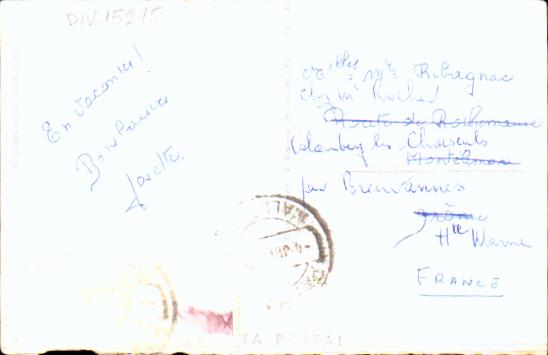 DIV15215
En Vacances!
Bons Baisers
Josette.
Ribagnac
chez Mr Rochas
Route de Rochemaure
Colombey les Choiseuls
Montélimar
par Breuvannes
Drôme
Hte Marne
FRANCE
POSTAL